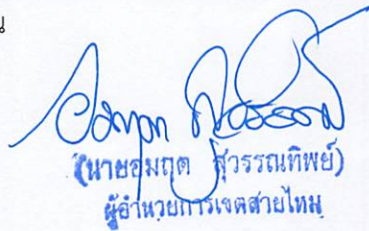 น
(นายอมฤต สุวรรณทิพย์)
ผู้อำนวยการเขตสายไหม